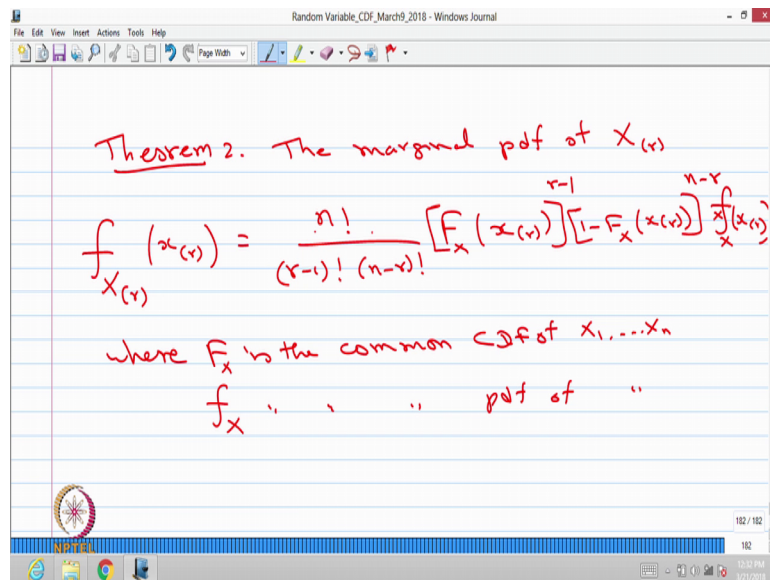 Random Variable_CDF_March9_2018 - Windows Journal
File Edit View Insert Actions Tools Help
Page Width
Theorem 2. The marginal pdf of X(r)
f_{X(r)} (x(r)) = n! / ((r-1)! (n-r)!) [F_X (x(r))]^{r-1} [1-F_X (x(r))]^{n-r} f_X (x(r))
where F_X is the common CDF of X1, ... Xn
f_X " " " pdf of "
182 / 182
NPTEL
182
12:32 PM